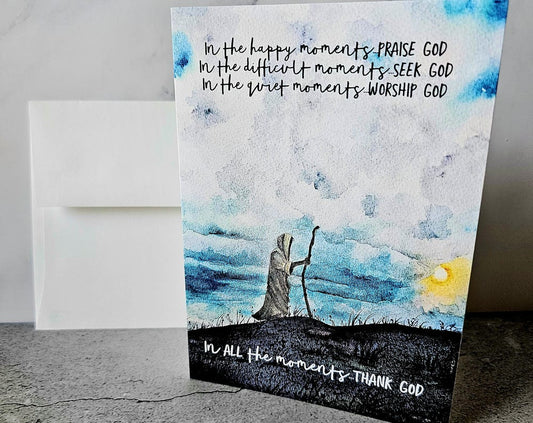 In the happy moments PRAISE GOD
In the difficult moments SEEK GOD
In the quiet moments WORSHIP GOD
In ALL the moments THANK GOD